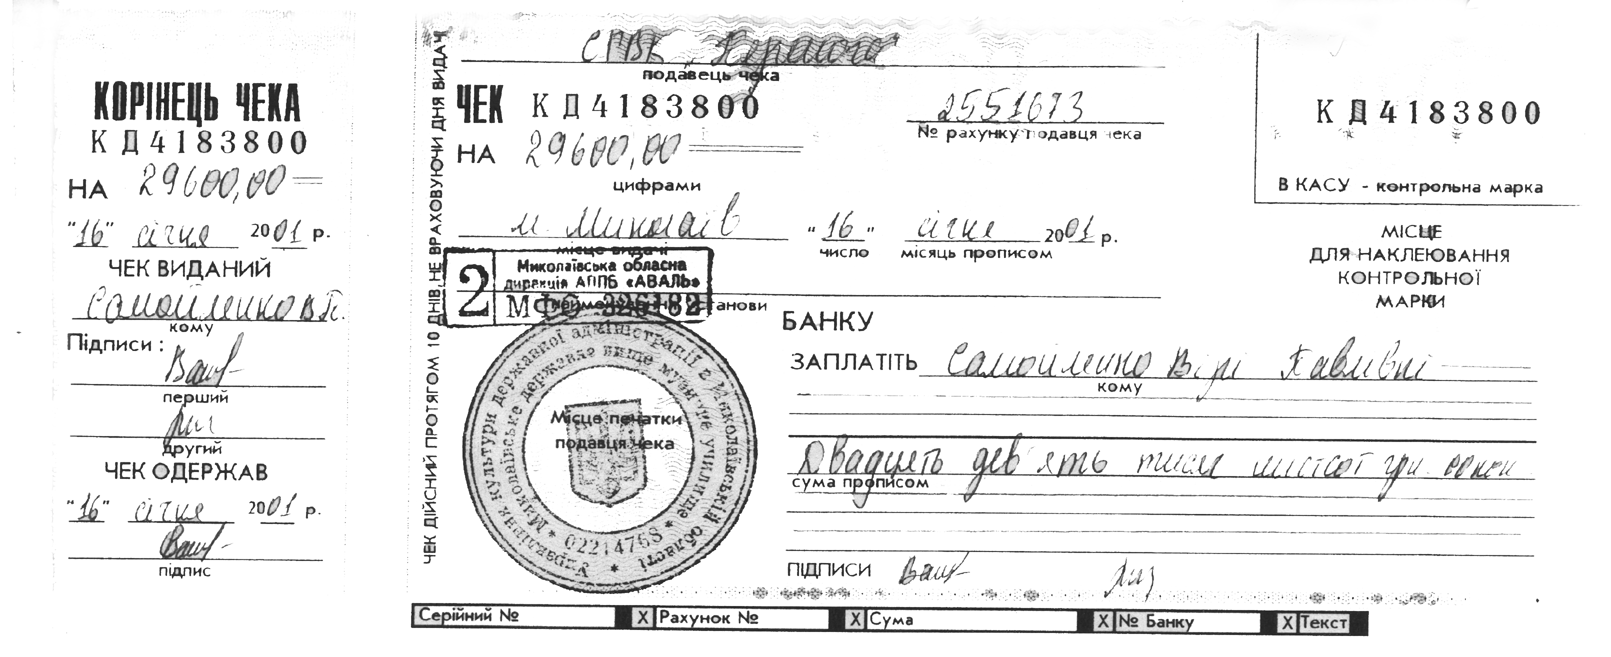 КОРІНЕЦЬ ЧЕКА
КД4183800
НА 29600,00
"16" січня 2001 р.
ЧЕК ВИДАНИЙ
Самойленко В.П.
кому
Підписи :
перший
другий
ЧЕК ОДЕРЖАВ
"16" січня 2001 р.
підпис
ЧЕК ДІЙСНИЙ ПРОТЯГОМ 10 ДНІВ, НЕ ВРАХОВУЮЧИ ДНЯ ВИДАЧ
СПВК
подавець чека
ЧЕК КД4183800
2551673
№ рахунку подавця чека
НА 29600,00
цифрами
м. Миколаїв "16" січня 2001 р.
місце видачі число місяць прописом
2
Миколаївська обласна
дирекція АППБ «АВАЛЬ»
МФО 326182
найменування установи
БАНКУ
ЗАПЛАТІТЬ Самойленко Вірі Павлівні
кому
Двадцять дев'ять тисяч шістсот грн.
сума прописом
ПІДПИСИ
Місце печатки
подавця чека
Управління культури державної адміністрації в Миколаївській області
Миколаївське державне вище музичне училище
02214768
КД4183800
В КАСУ - контрольна марка
МІСЦЕ
ДЛЯ НАКЛЕЮВАННЯ
КОНТРОЛЬНОЇ
МАРКИ
Серійний № X Рахунок № X Сума X № Банку X Текст